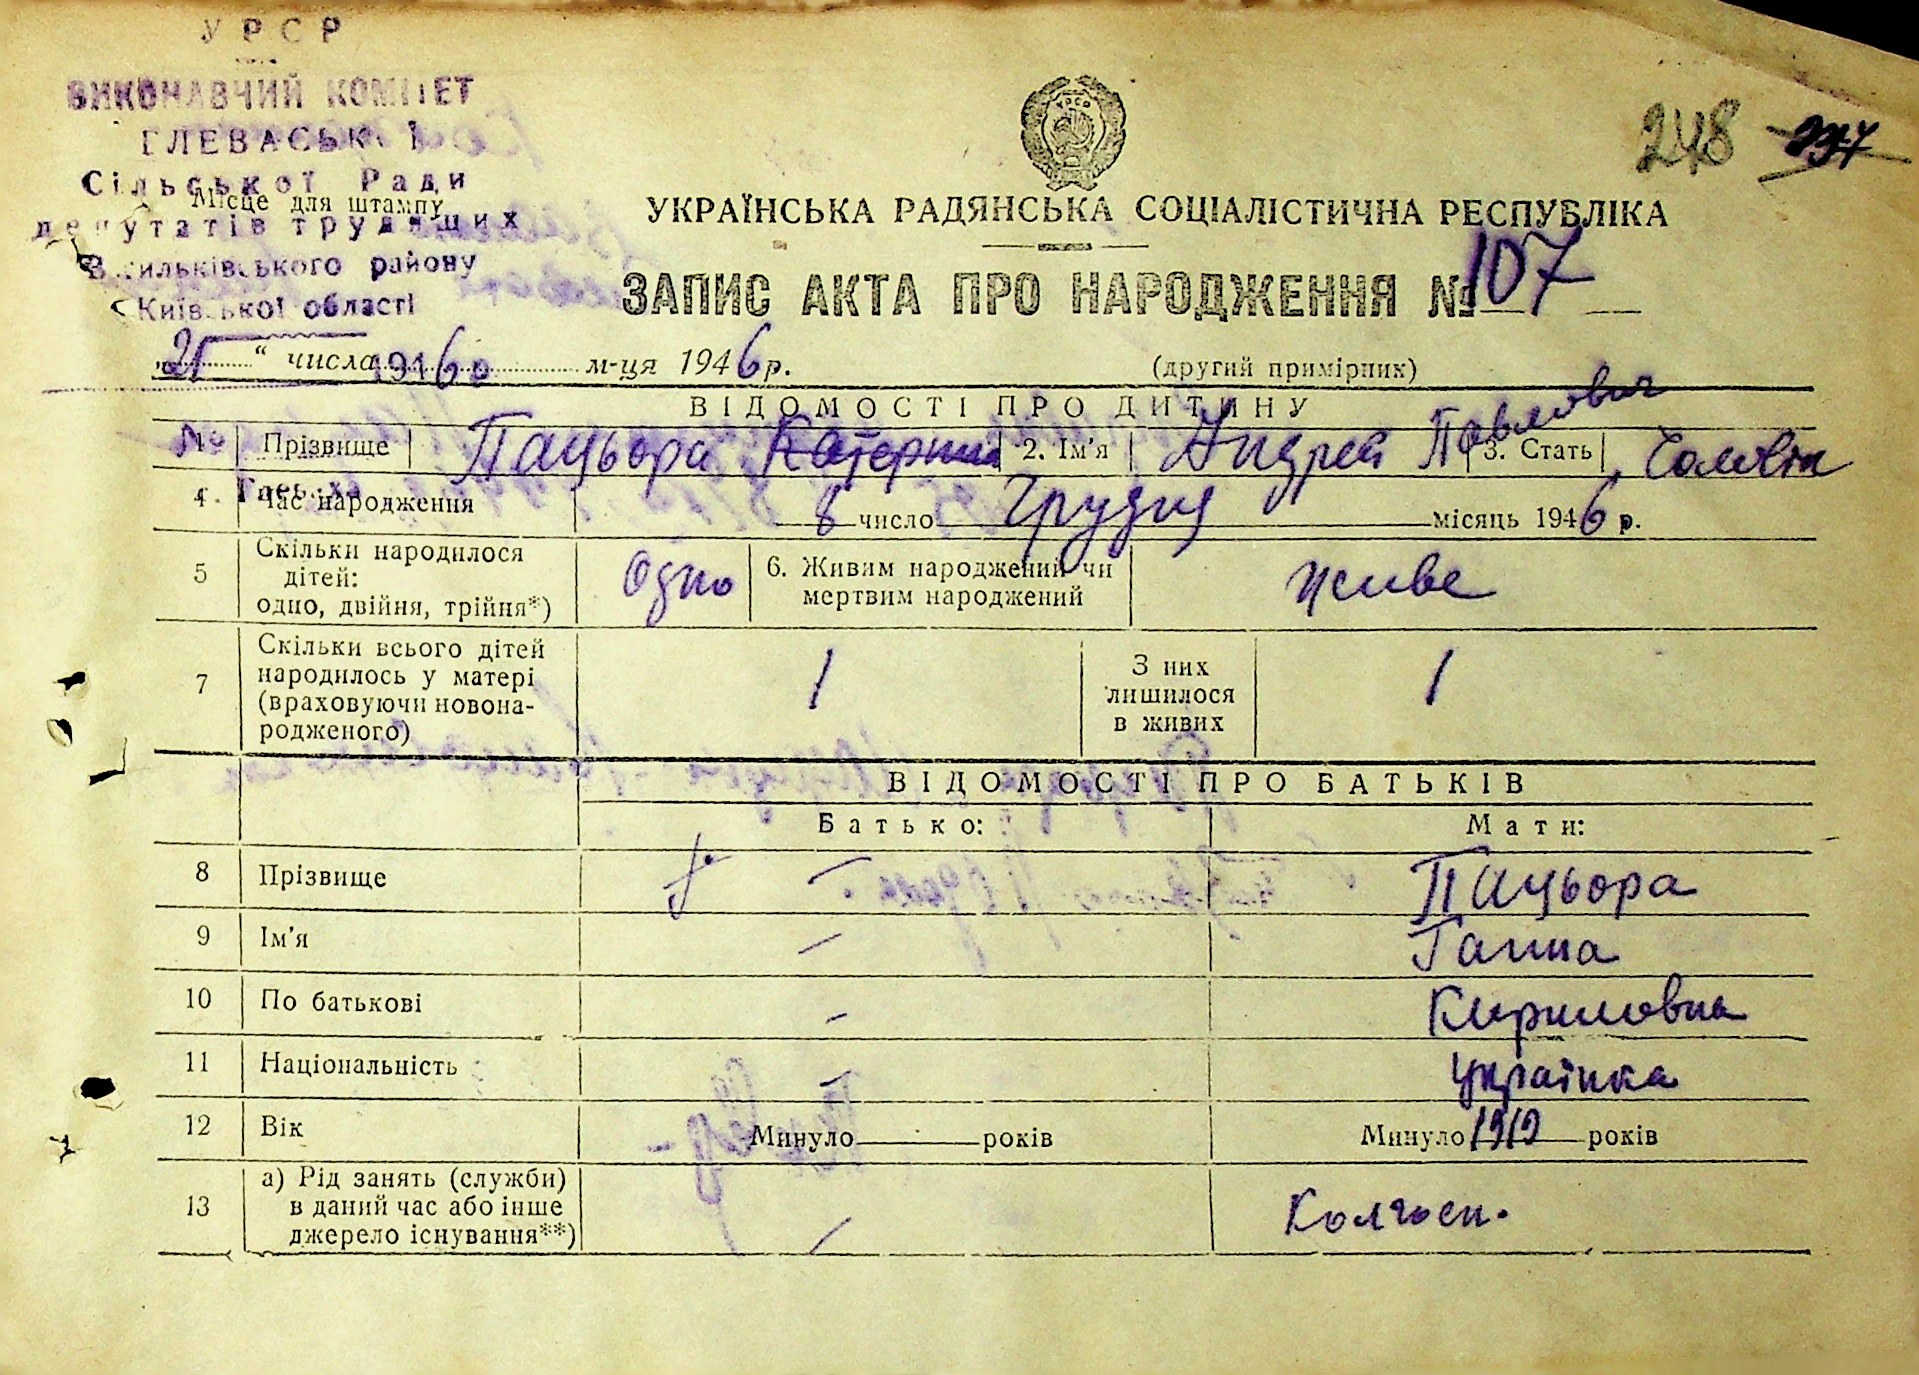 УРСР
ВИКОНАВЧИЙ КОМІТЕТ
ГЛЕВАСЬКОЇ
Сільської Ради
Місце для штампу
депутатів трудящих
Васильківського району
Київської області
248 237
УКРАЇНСЬКА РАДЯНСЬКА СОЦІАЛІСТИЧНА РЕСПУБЛІКА
ЗАПИС АКТА ПРО НАРОДЖЕННЯ № 107
„21“ числа 1946 р м-ця 1946 р.
(другий примірник)
ВІДОМОСТІ ПРО ДИТИНУ
№ Прізвище Пацьора Катерина 2. Ім'я Андрей Павлович 3. Стать Чоловік
4. Час народження 8 число Грудня місяць 1946 р.
5 Скільки народилося дітей: одно, двійня, трійня*) Одно 6. Живим народжений чи мертвим народжений живе
7 Скільки всього дітей народилось у матері (враховуючи новона-родженого) 1 З них лишилося в живих 1
ВІДОМОСТІ ПРО БАТЬКІВ
Батько: Мати:
8 Прізвище — Пацьора
9 Ім'я — Ганна
10 По батькові — Кириловна
11 Національність — Українка
12 Вік Минуло років Минуло 1919 років
13 а) Рід занять (служби) в даний час або інше джерело існування**) — Колгосп.